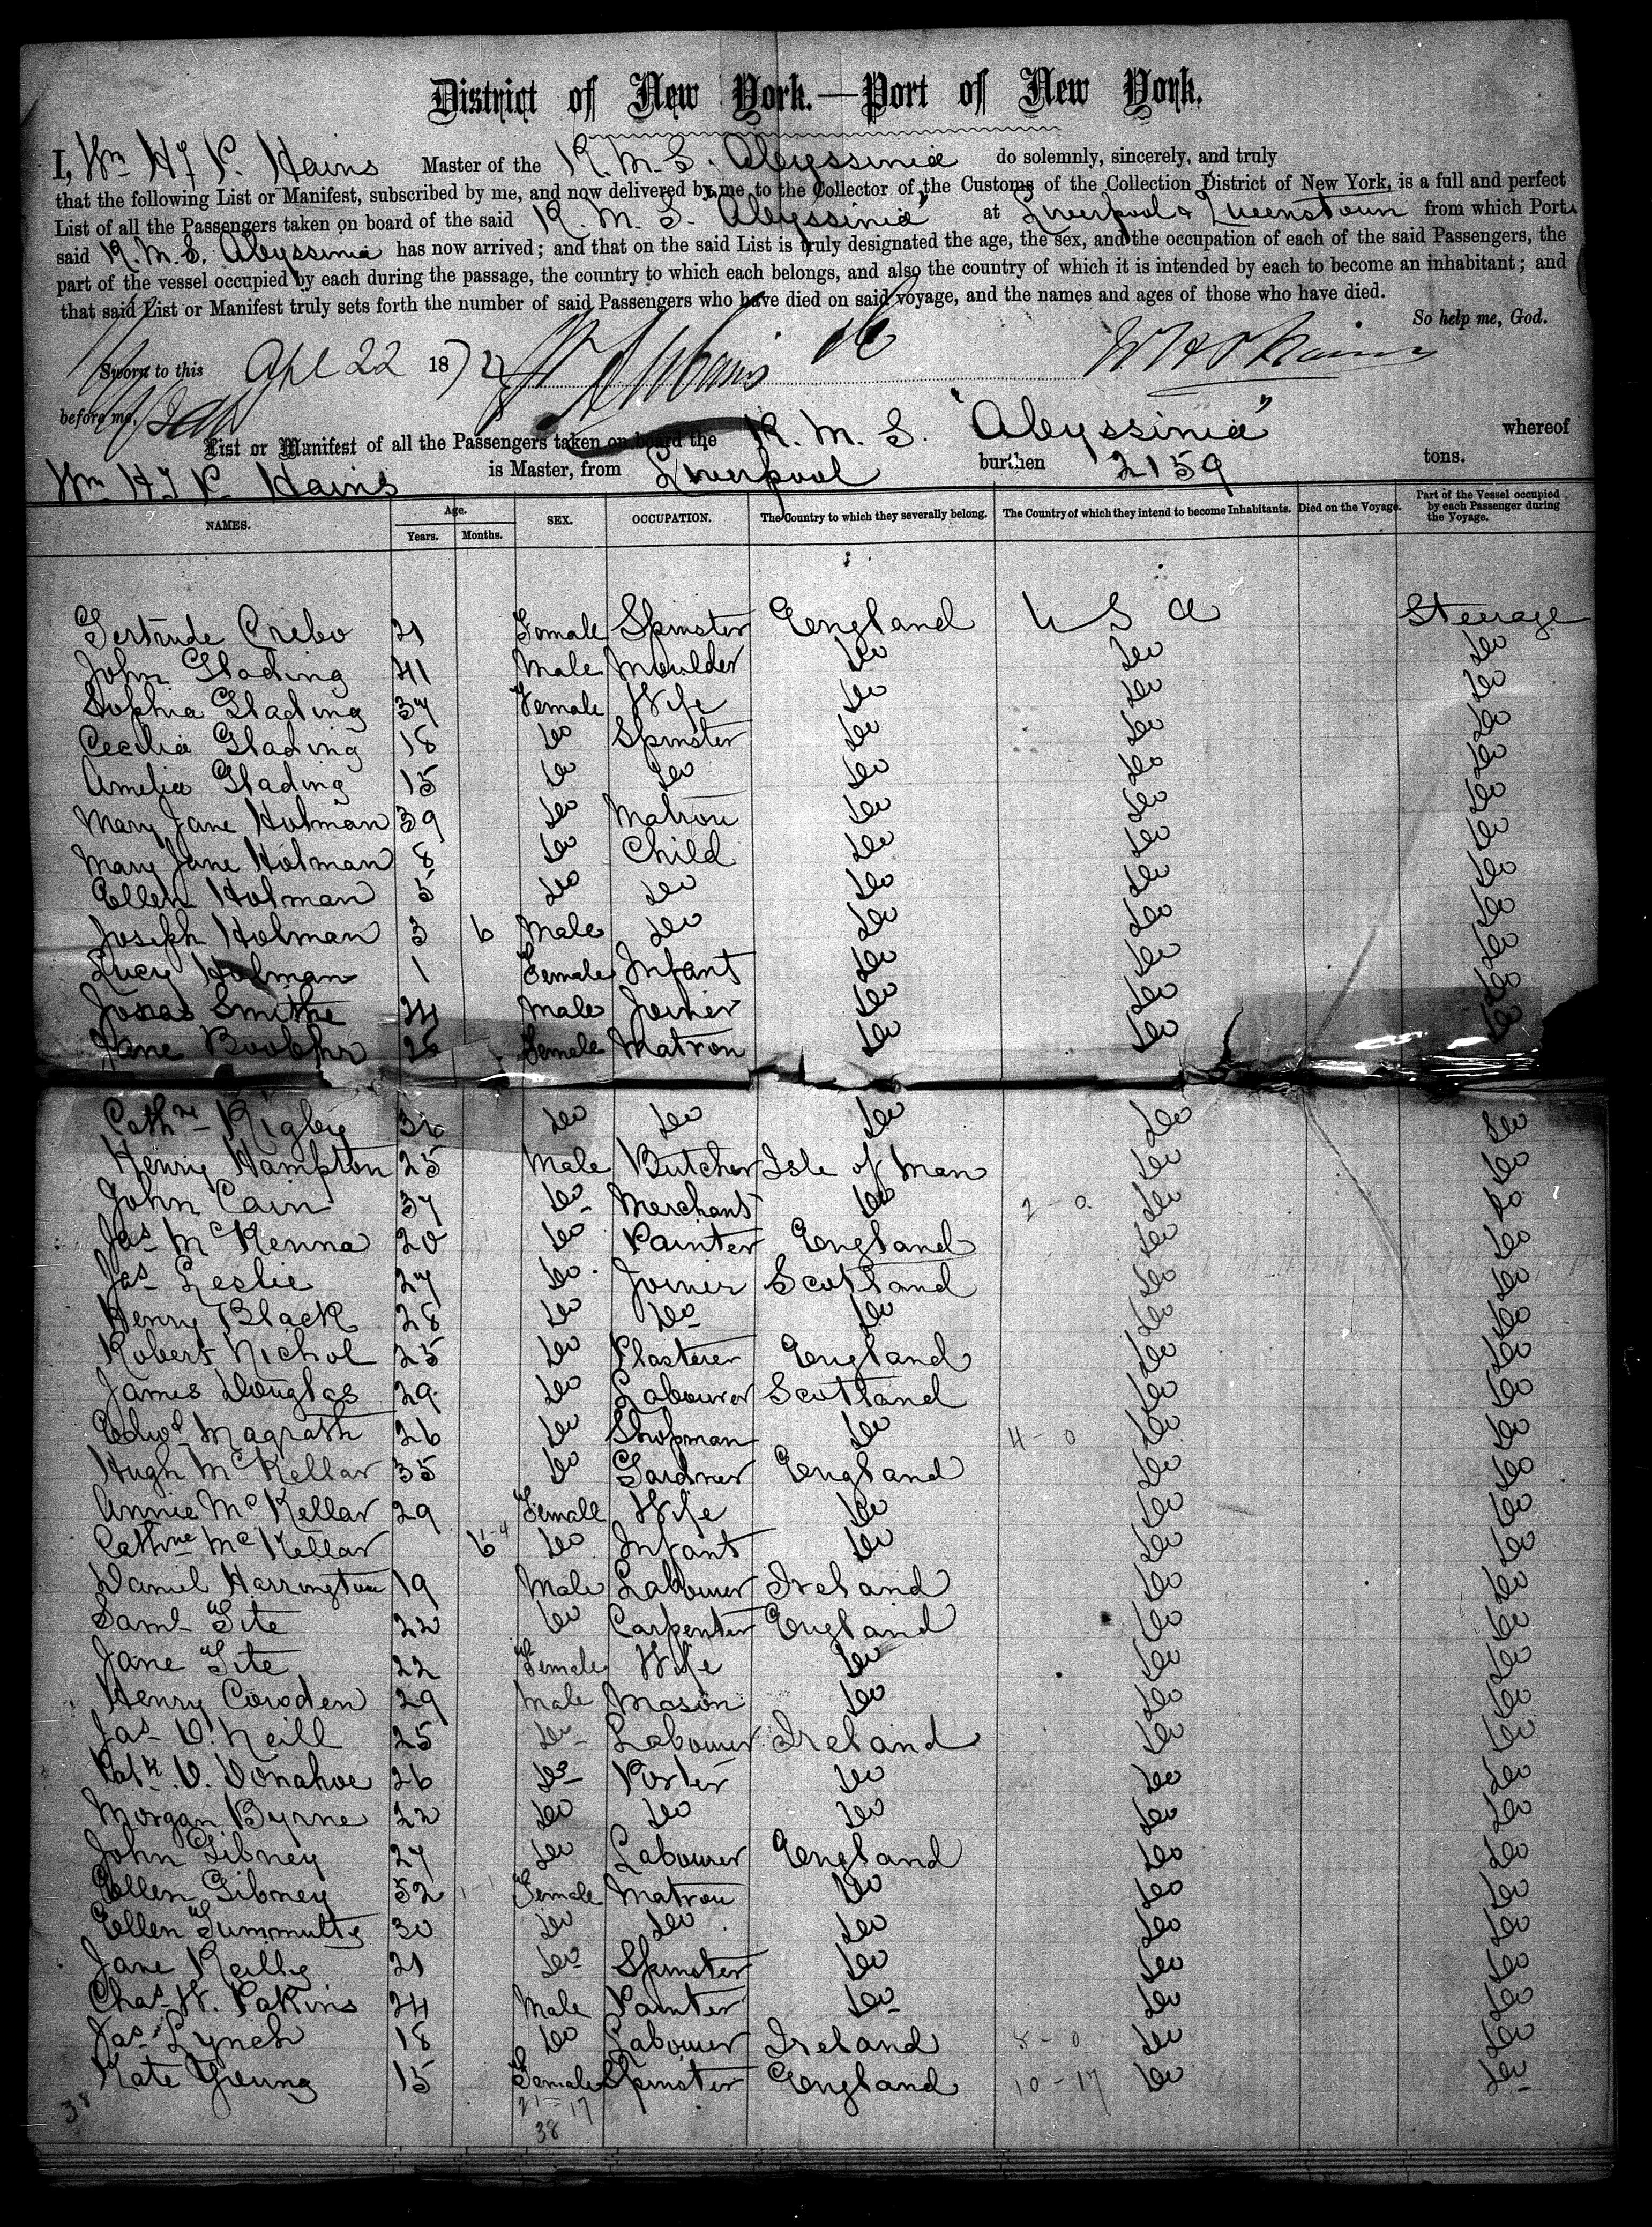 District of New York.—Port of New York.
I, Wm H P. Hains Master of the R.M.S. Abyssinia do solemnly, sincerely, and truly
that the following List or Manifest, subscribed by me, and now delivered by me to the Collector of the Customs of the Collection District of New York, is a full and perfect
List of all the Passengers taken on board of the said R.M.S. "Abyssinia" at Liverpool & Queenstown from which Port
said R.M.S. Abyssinia has now arrived; and that on the said List is truly designated the age, the sex, and the occupation of each of the said Passengers, the
part of the vessel occupied by each during the passage, the country to which each belongs, and also the country of which it is intended by each to become an inhabitant; and
that said List or Manifest truly sets forth the number of said Passengers who have died on said voyage, and the names and ages of those who have died.
So help me, God.
Sworn to this Apl 22 187
before me,
List or Manifest of all the Passengers taken on board the R.M.S. "Abyssinia" whereof
Wm H P. Hains is Master, from Liverpool burthen 2159 tons.
NAMES. Age. Years. Months. SEX. OCCUPATION. The Country to which they severally belong. The Country of which they intend to become Inhabitants. Died on the Voyage. Part of the Vessel occupied by each Passenger during the Voyage.
Gertrude 21 Female Spinster England U S A Steerage
John Glading 41 Male Moulder Do Do Do
Sophia Glading 37 Female Wife Do Do Do
Cecilia Glading 18 Do Spinster Do Do Do
Amelia Glading 15 Do Do Do Do Do
Mary Jane Holman 39 Do Matron Do Do Do
Mary Jane Holman 8 Do Child Do Do Do
Ellen Holman 5 Do Do Do Do Do
Joseph Holman 3 6 Male Do Do Do Do
Lucy Holman 1 Female Infant Do Do Do
Smithe 24 Male Joiner Do Do Do
Jane 26 Female Matron Do Do Do
Cathne Rigby Do Do Do Do Do
Henry Hampton 25 Male Butcher Isle of Man Do Do
John Cain 37 Do Merchant Do 2-0 Do Do
Jas McKenna 20 Do Painter England Do Do
Jas Leslie 27 Do Joiner Scotland Do Do
Henry Black 28 Do Do Do Do Do
Robert Nichol 25 Do Plasterer England Do Do
James Douglas 29 Do Labourer Scotland Do Do
Edwd Magrath 26 Do Shopman Do 4-0 Do Do
Hugh McKellar 35 Do Gardner England Do Do
Annie McKellar 29 Female Wife Do Do Do
Cathne McKellar 6 1-4 Do Infant Do Do Do
Daniel Harrington 19 Male Labourer Ireland Do Do
Saml Tite 22 Do Carpenter England Do Do
Jane Tite 22 Female Wife Do Do Do
Henry Cowden 29 Male Mason Do Do Do
Jas O.Neill 25 Do Labourer Ireland Do Do
Patk O.Donahoe 26 Do Porter Do Do Do
Morgan Byrne 22 Do Do Do Do Do
John Gibney 27 Do Labourer England Do Do
Ellen Gibney 52 1-1 Female Matron Do Do Do
Ellen 30 Do Do Do Do Do
Jane Reilly 21 Do Spinster Do Do Do
Chas W. Pakins 24 Male Painter Do Do Do
Jas Lynch 18 Do Labourer Ireland 8-0 Do Do
Kate Young 15 Female Spinster England 10-17 Do Do
38 21-17
38